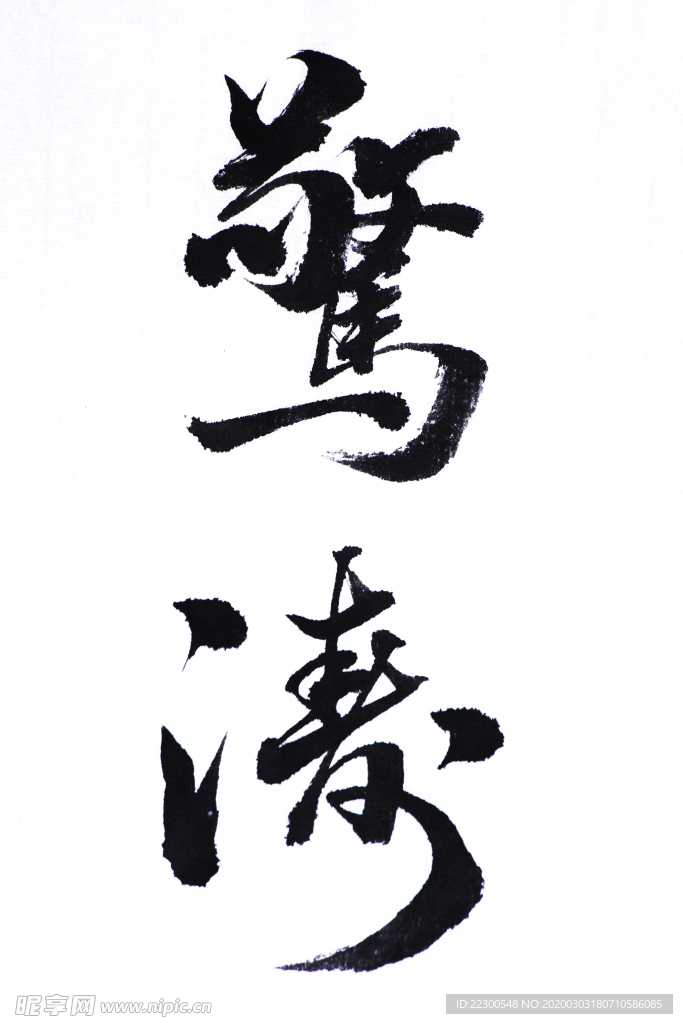 驚
濤
昵享网 www.nipic.cn
ID:22300548 NO:20200303180710586085